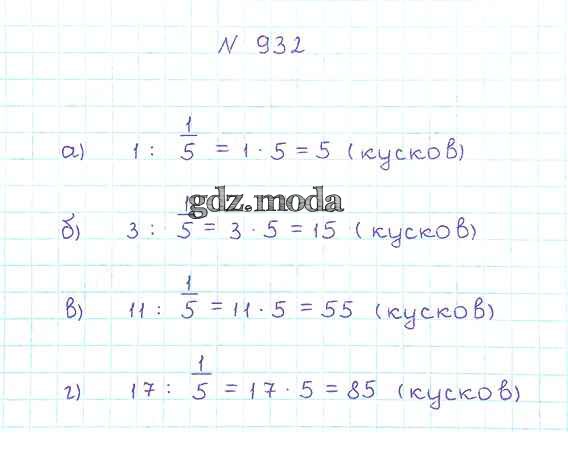 N 932
а) 1 : 1/5 = 1 · 5 = 5 (кусков)
gdz.moda
б) 3 : 1/5 = 3 · 5 = 15 (кусков)
в) 11 : 1/5 = 11 · 5 = 55 (кусков)
г) 17 : 1/5 = 17 · 5 = 85 (кусков)